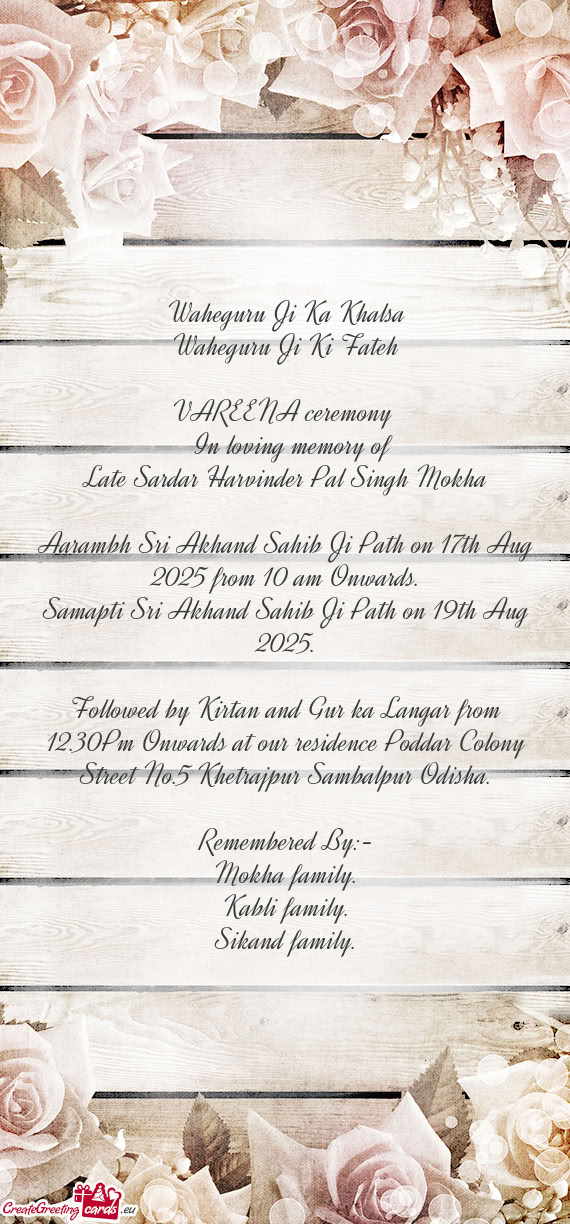 Waheguru Ji Ka Khalsa
Waheguru Ji Ki Fateh
VAREENA ceremony
In loving memory of
Late Sardar Harvinder Pal Singh Mokha
Aarambh Sri Akhand Sahib Ji Path on 17th Aug
2025 from 10 am Onwards.
Samapti Sri Akhand Sahib Ji Path on 19th Aug
2025.
Followed by Kirtan and Gur ka Langar from
12.30Pm Onwards at our residence Poddar Colony
Street No.5 Khetrajpur Sambalpur Odisha.
Remembered By:-
Mokha family.
Kabli family.
Sikand family.
CreateGreetingcards.eu